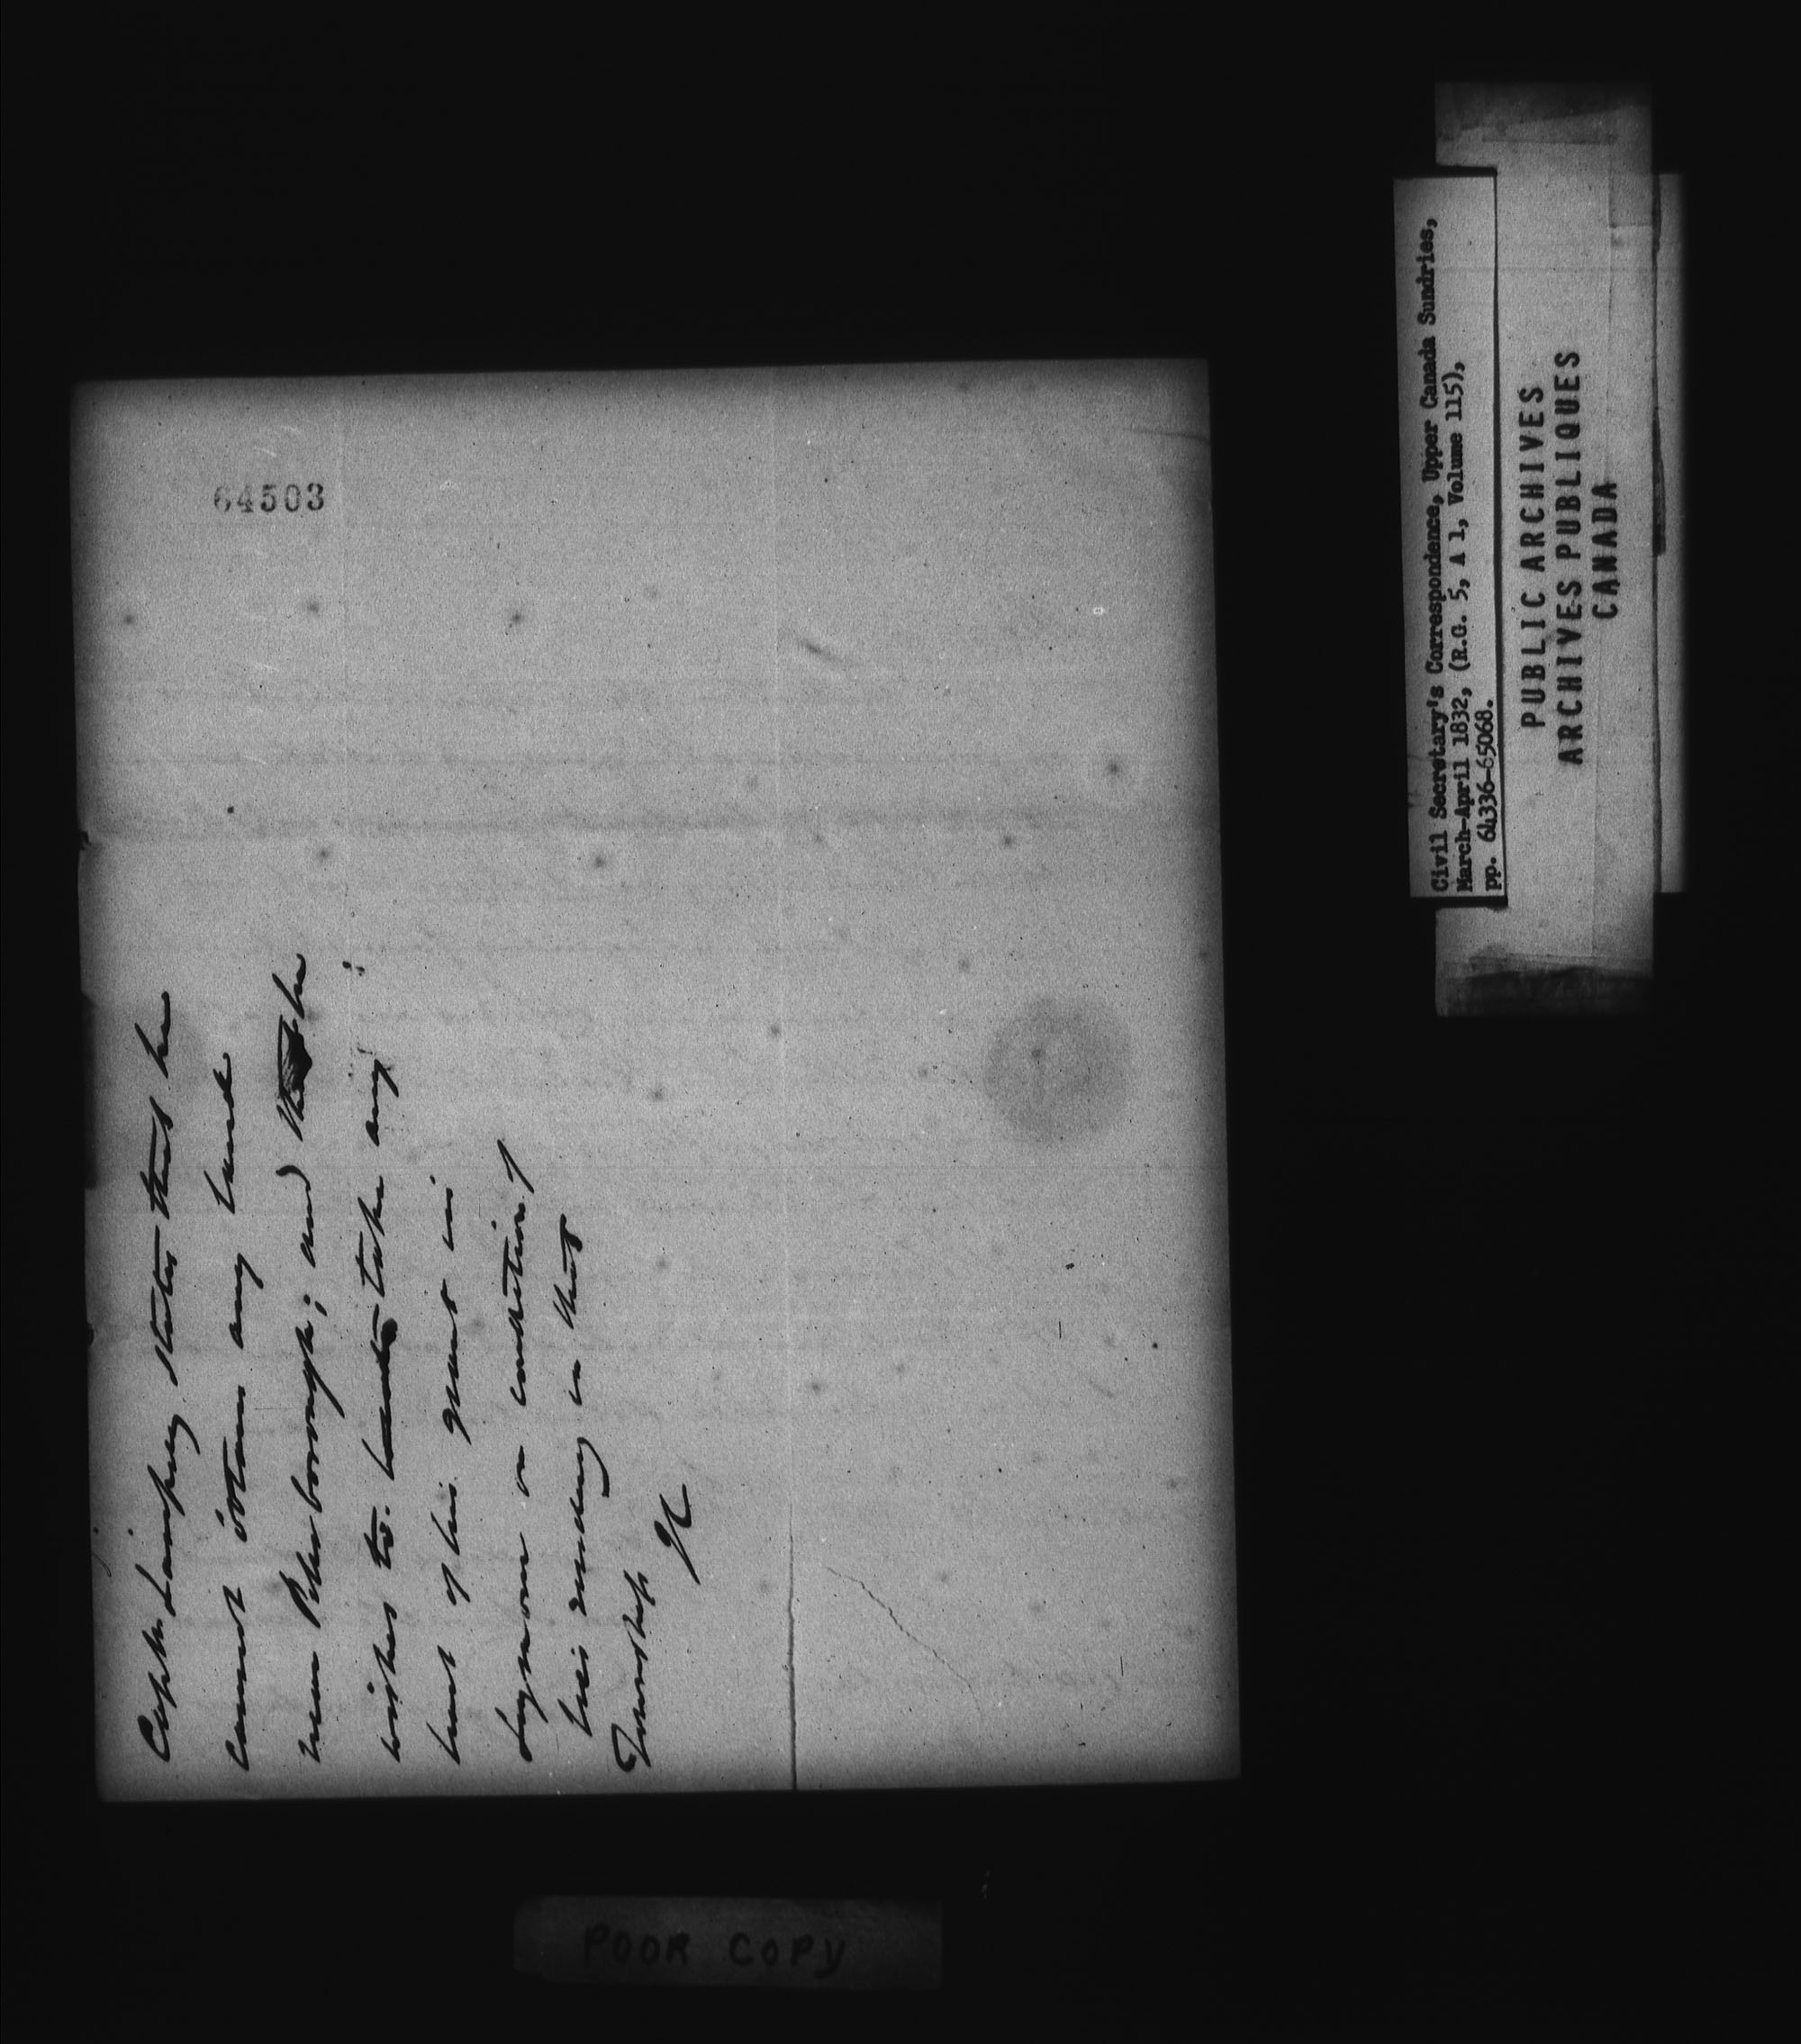 64503
Capt. Sampey states that he
cannot obtain any land
near Peterborough; and that he
wishes to take any
part of his grant in
Seymour on condition of
his residing in that
Township
Civil Secretary's Correspondence, Upper Canada Sundries,
March-April 1832, (R.G. 5, A 1, Volume 115),
pp. 64336-65068.
PUBLIC ARCHIVES
ARCHIVES PUBLIQUES
CANADA
POOR COPY